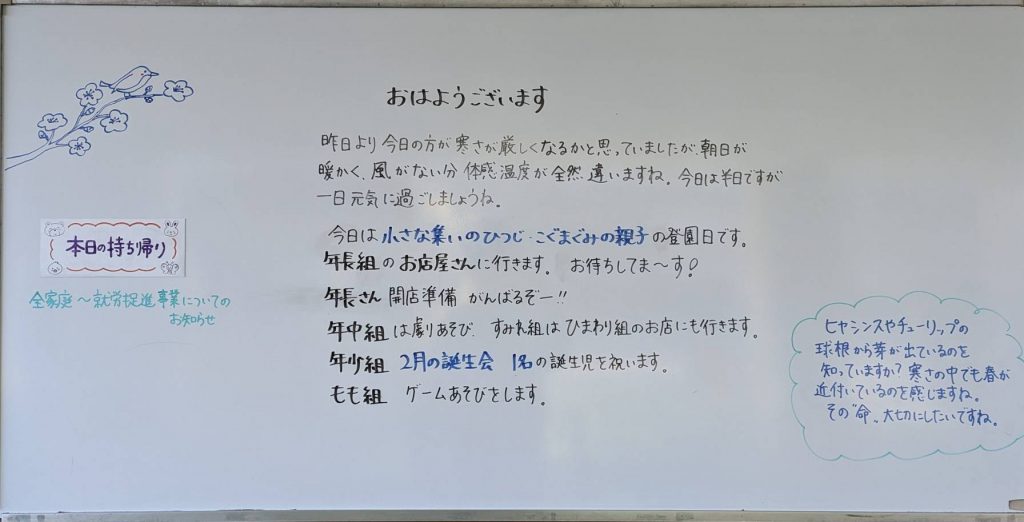 おはようございます
昨日より今日の方が寒さが厳しくなるかと思っていましたが、朝日が
暖かく、風がない分体感温度が全然違いますね。今日は半日ですが
一日元気に過ごしましょうね。
今日は小さな集いのひつじ・こぐまぐみの親子の登園日です。
年長組のお店屋さんに行きます。 お待ちしてま〜す!
年長さん 開店準備 がんばるぞー!!
年中組は劇あそび、すみれ組はひまわり組のお店にも行きます。
年少組 2月の誕生会 1名の誕生児を祝います。
もも組 ゲームあそびをします。
本日の持ち帰り
全家庭〜就労促進事業についての
お知らせ
ヒヤシンスやチューリップの
球根から芽が出ているのを
知っていますか?寒さの中でも春が
近付いているのを感じますね。
その"命"大切にしたいですね。